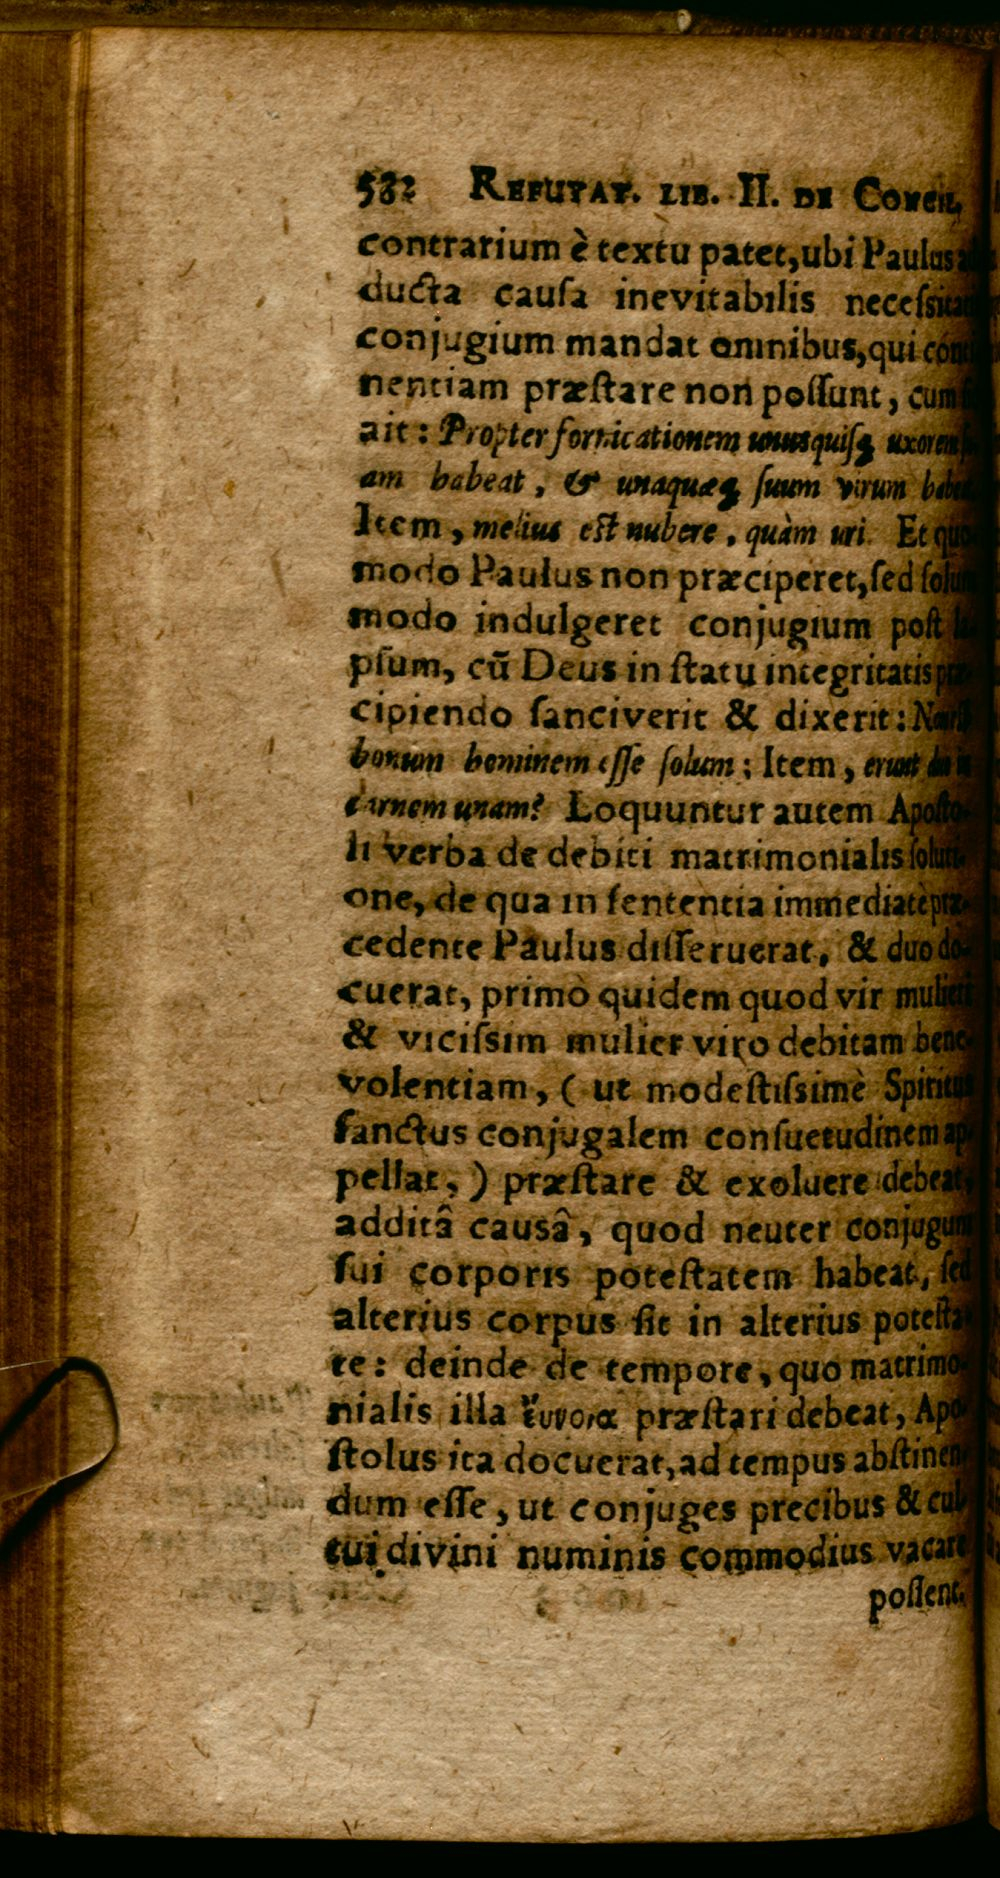 582 REFUTAT. LIB. II. DE CONCIL.
contrarium è textu patet, ubi Paulus ad-
ducta cauſa inevitabilis neceſsitatis
conjugium mandat omnibus, qui conti-
nentiam præſtare non poſſunt, cum ſic
ait: Propter fornicationem unusquiſq; uxorem ſu-
am habeat, & unaquæq; ſuum virum habeat.
Item, melius eſt nubere, quàm uri. Et quo-
modo Paulus non præciperet, ſed ſolum
modo indulgeret conjugium poſt la-
pſum, cũ Deus in ſtatu integritatis præ-
cipiendo ſanciverit & dixerit: Non eſt
bonum hominem eſſe ſolum: Item, erunt duo in
carnem unam? Loquuntur autem Apoſto-
li verba de debiti matrimonialis ſoluti-
one, de qua in ſententia immediatè præ-
cedente Paulus diſſeruerat, & duo do-
cuerat, primò quidem quod vir mulieri
& viciſsim mulier viro debitam bene-
volentiam, (ut modeſtiſsimè Spiritus
ſanctus conjugalem conſuetudinem ap-
pellat,) præſtare & exoluere debeat,
additâ causâ, quod neuter conjugum
ſui corporis poteſtatem habeat, ſed
alterius corpus ſit in alterius poteſta-
te: deinde de tempore, quo matrimo-
nialis illa ἔυνοια præſtari debeat, Apo-
ſtolus ita docuerat, ad tempus abſtinen-
dum eſſe, ut conjuges precibus & cul-
tui divini numinis commodius vacare
poſſent.